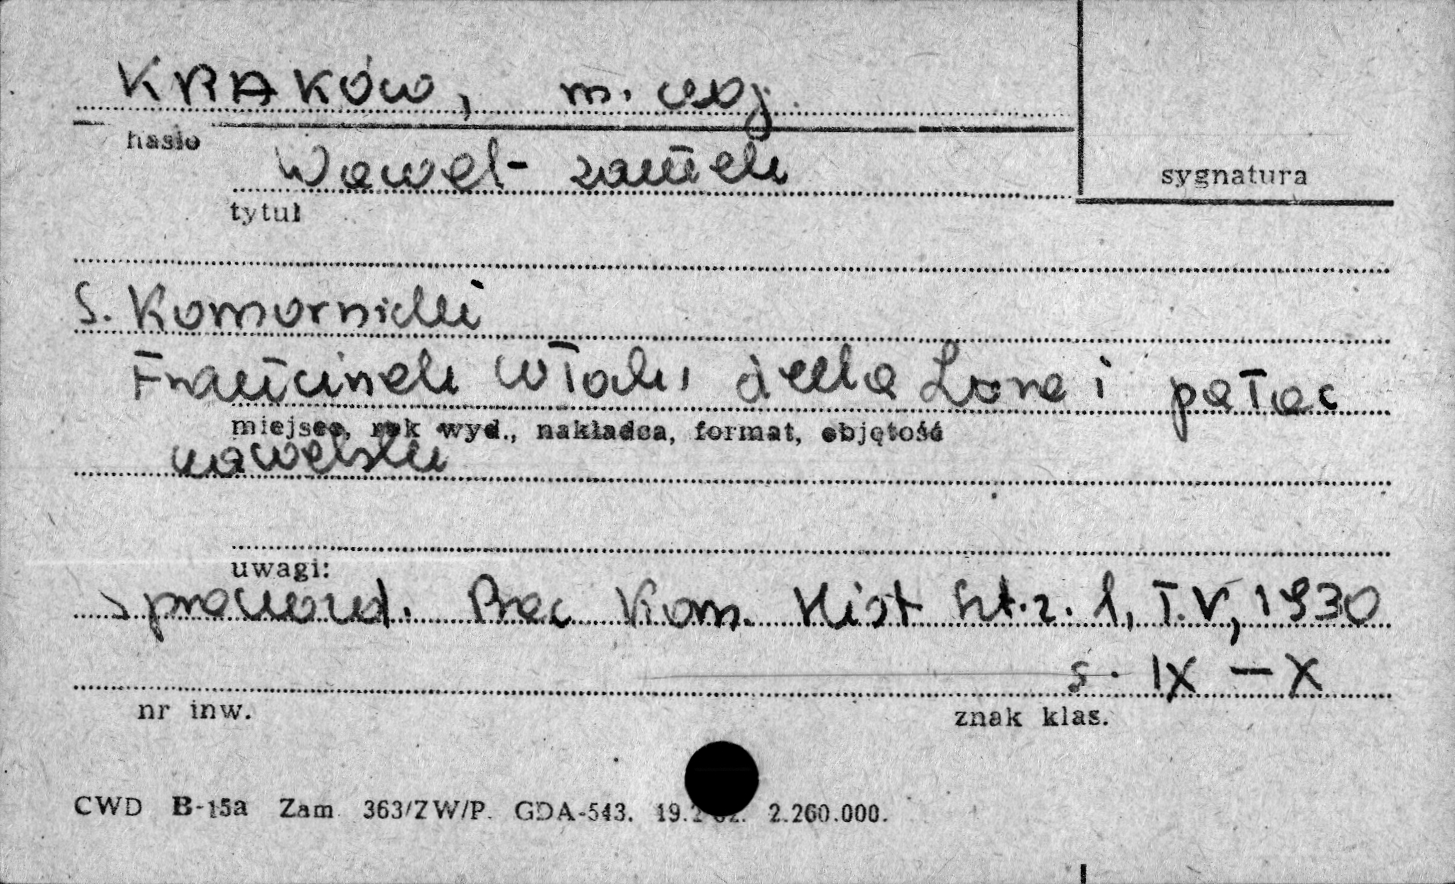 KRAKÓW, m. woj.
hasło
Wawel - zamek
sygnatura
tytuł
S. Komornicki
Franciszek Włoch, della Lora i pałac
miejsce, rok wyd., nakładca, format, objętość
wawelski
uwagi:
Sprawozd. Prac Kom. Hist Szt. z. 1, T. V, 1930
s. IX - X
nr inw.
znak klas.
CWD B-15a Zam. 363/ZW/P. GDA-543. 2.260.000.